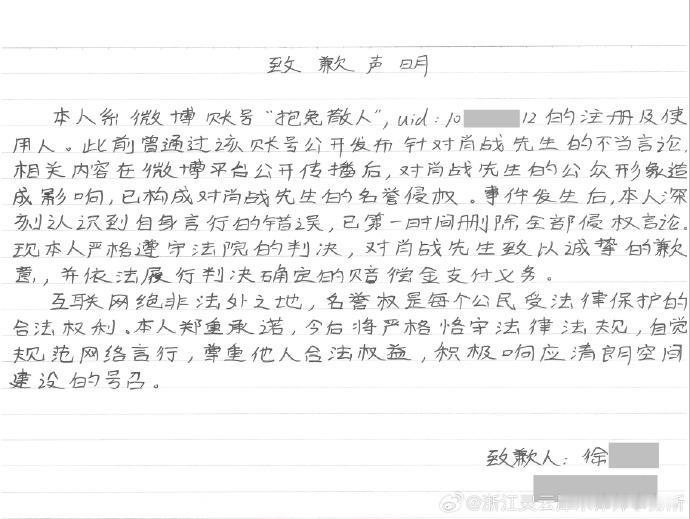 致歉声明
本人系微博账号“抱兔散人”，uid：10 12的注册及使
用人。此前曾通过该账号公开发布针对肖战先生的不当言论，
相关内容在微博平台公开传播后，对肖战先生的公众形象造
成影响，已构成对肖战先生的名誉侵权。事件发生后，本人深
刻认识到自身言行的错误，已第一时间删除全部侵权言论。
现本人严格遵守法院的判决，对肖战先生致以诚挚的歉
意，并依法履行判决确定的赔偿金支付义务。
互联网络非法外之地，名誉权是每个公民受法律保护的
合法权利。本人郑重承诺，今后将严格恪守法律法规，自觉
规范网络言行，尊重他人合法权益，积极响应清朗空间
建设的号召。
致歉人：徐
@浙江灵云